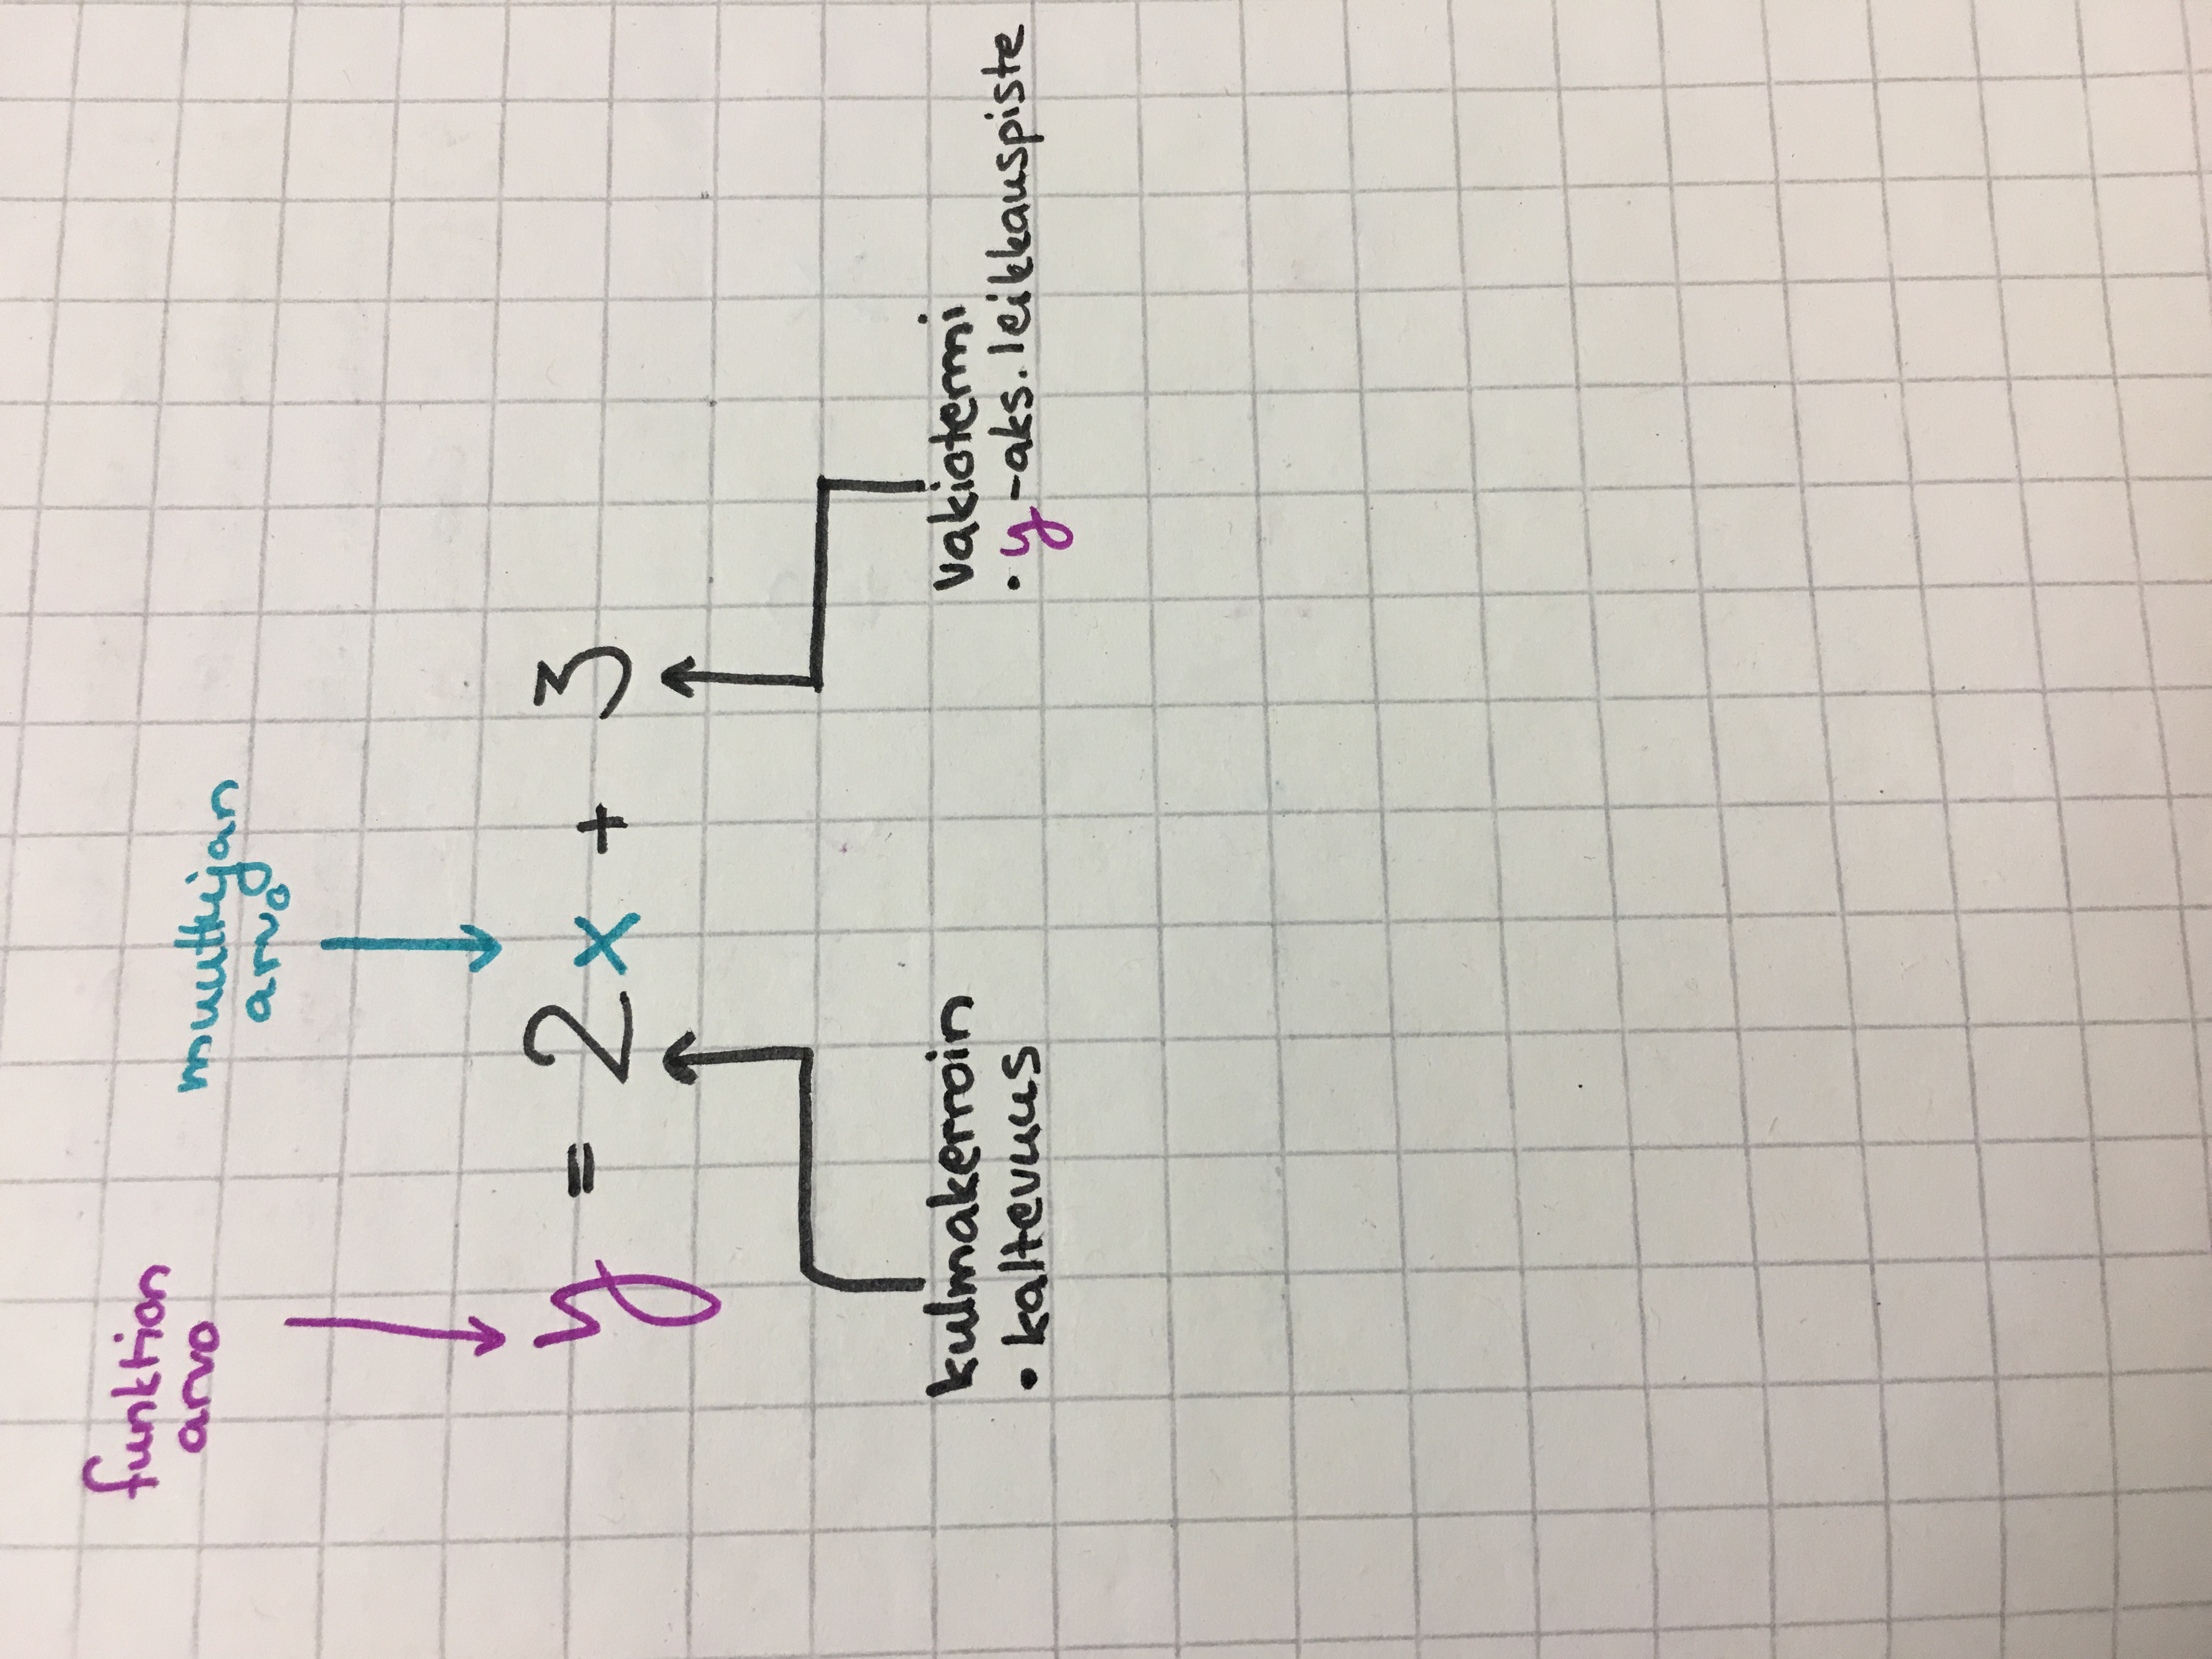 funktion
arvo
muuttujan
arvo
y = 2x + 3
kulmakerroin
• kaltevuus
vakiotermi
• y-aks. leikkauspiste